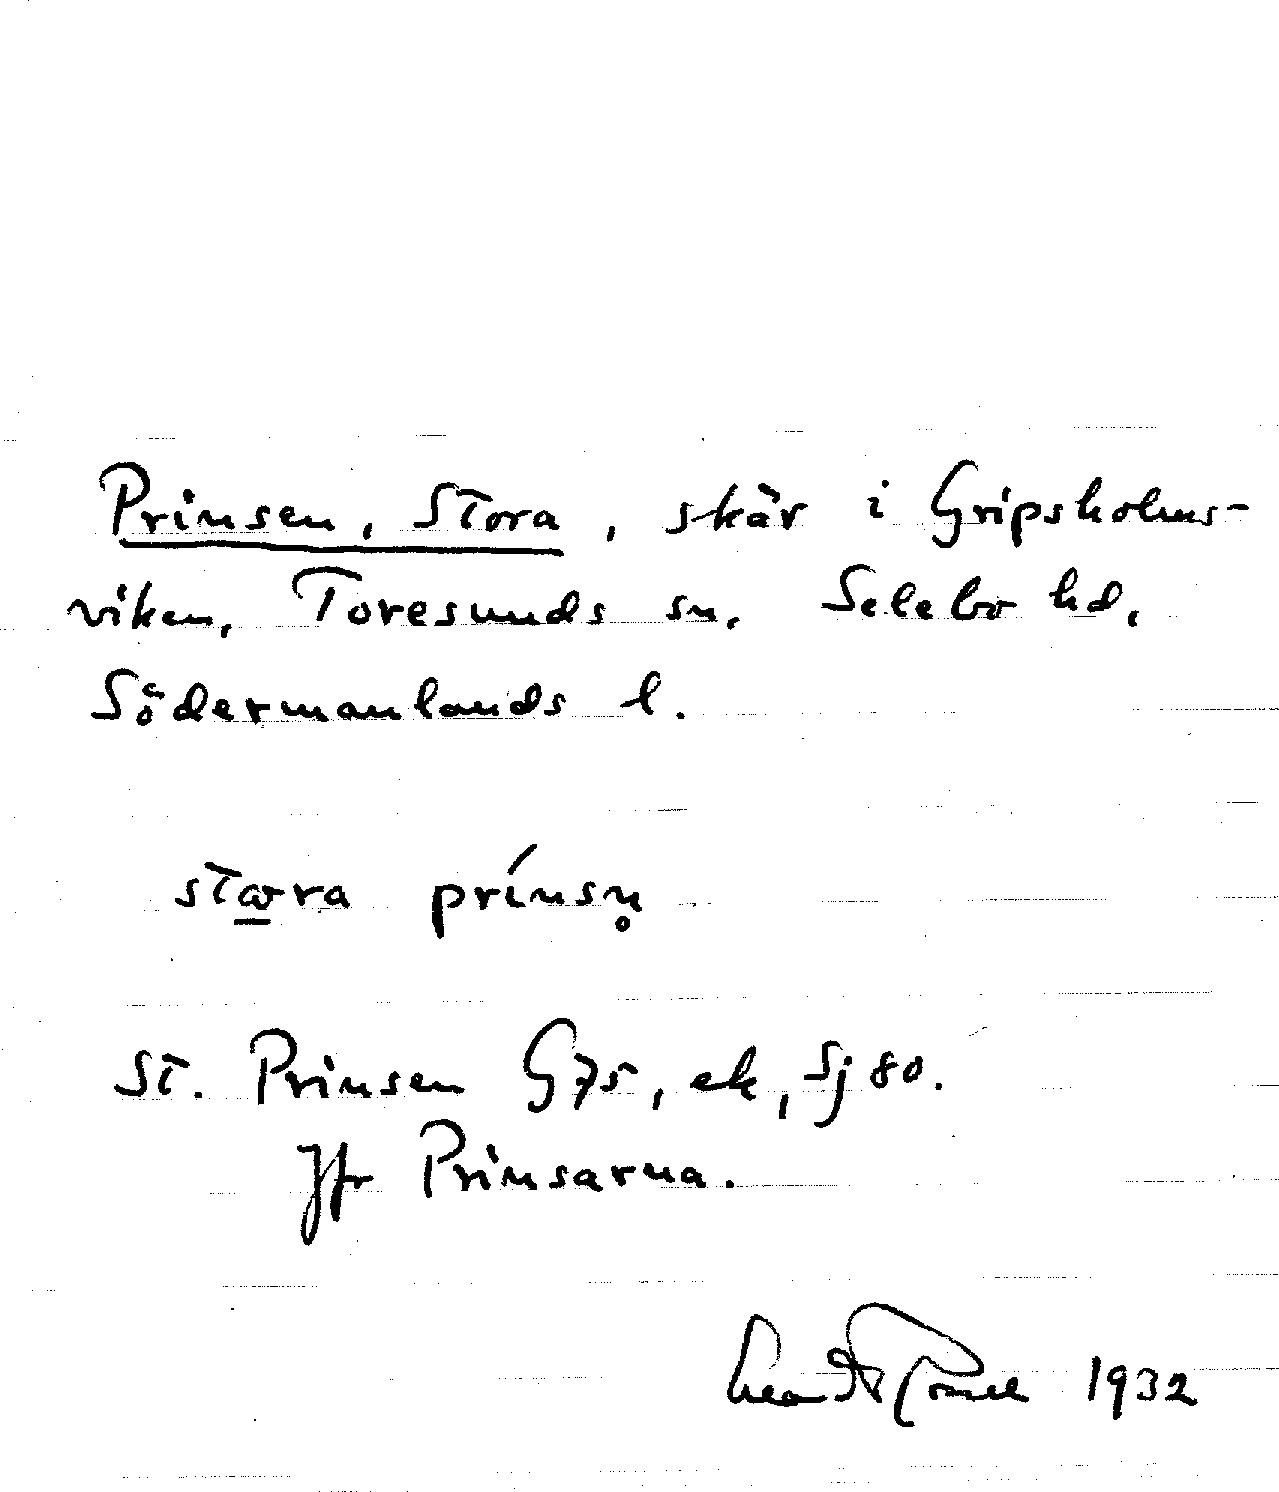 Prinsen, Stora, skär i Gripsholms-
viken, Toresunds sn, Selebo hd,
Södermanlands l.
prínsn̥
St. Prinsen G75, ek, Sj 80.
Jfr Prinsarna.
1932